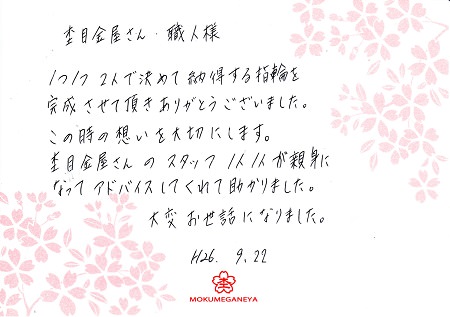 杢目金屋さん・職人様
1つ1つ2人で決めて納得する指輪を
完成させて頂きありがとうございました。
この時の想いを大切にします。
杢目金屋さんのスタッフ1人1人が親身に
なってアドバイスしてくれて助かりました。
大変お世話になりました。
H26. 9.22
杢
MOKUMEGANEYA